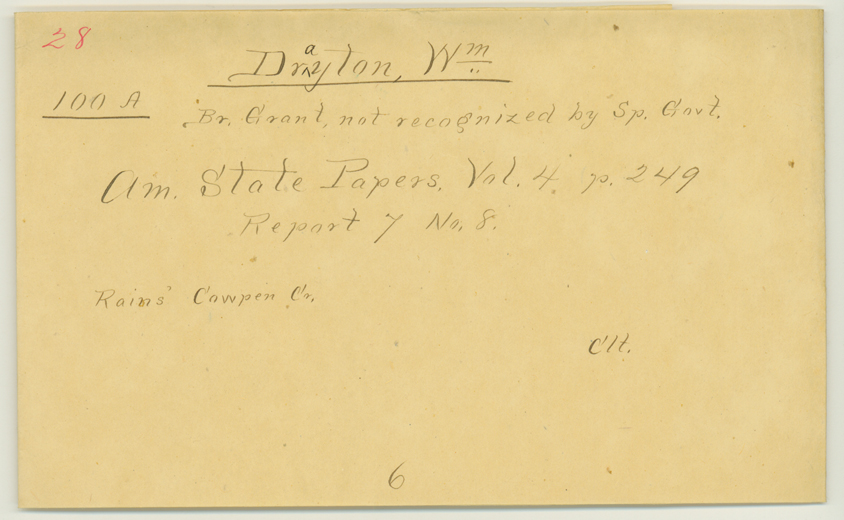 28
Drayton, Wm
100 A
Br. Grant, not recognized by Sp. Govt.
Am. State Papers, Vol. 4. p. 249
Report 7 No. 8.
Rains' Cowpen Cr.
Clt.
6